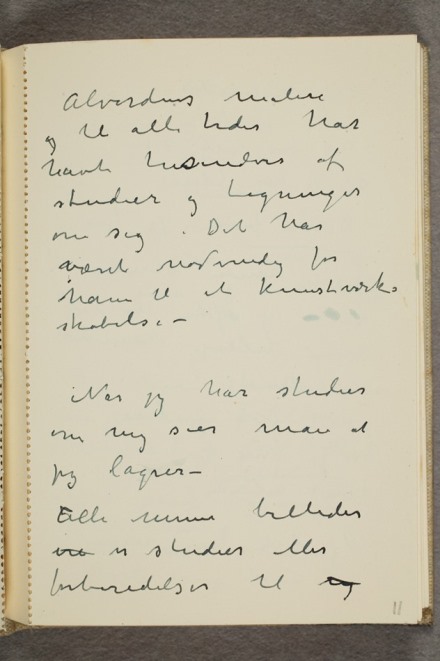 Alverdens malere
og til alle tider har
havt tusindvis af
studier og tegninger
om sig. Det har
været nødvendig for
ham til et kunstværks
skabelse –
Når jeg har studier
om mig sier man at
jeg lagrer –
Alle mine billeder
er studier eller
forberedelser til og
11